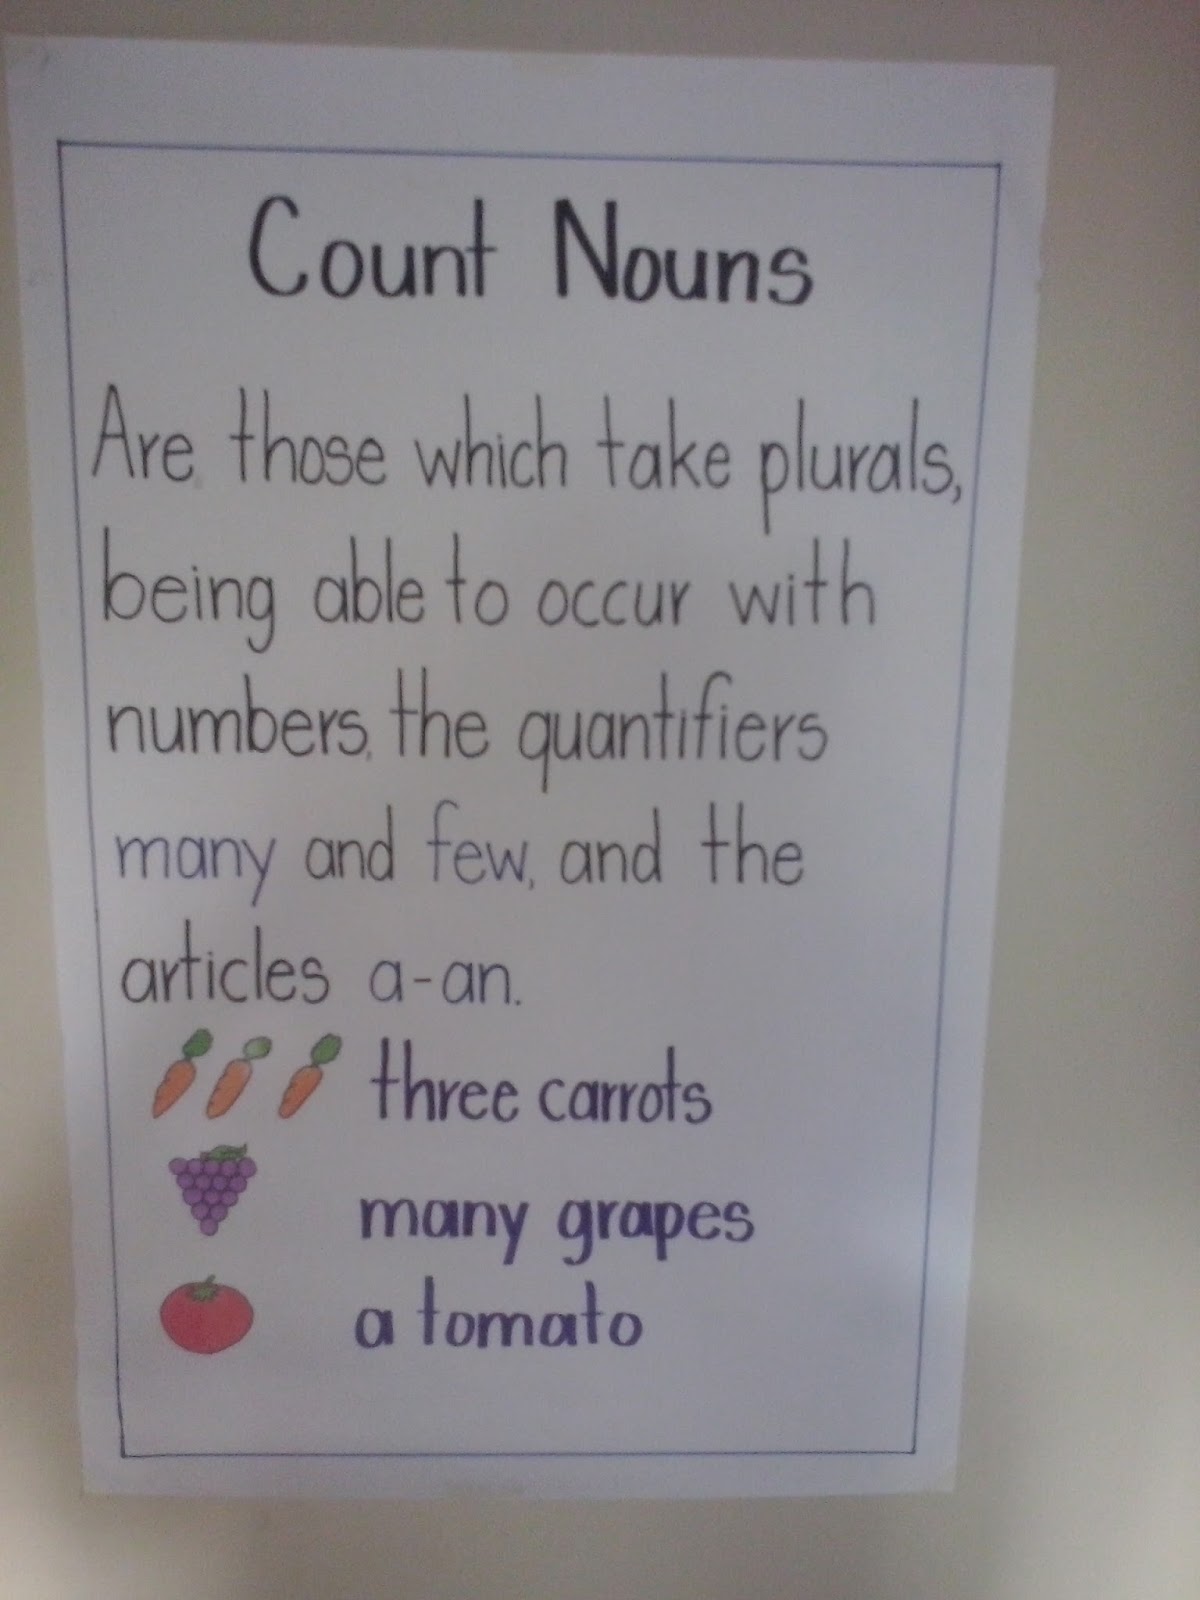 Count Nouns
Are those which take plurals,
being able to occur with
numbers, the quantifiers
many and few, and the
articles a-an.
three carrots
many grapes
a tomato